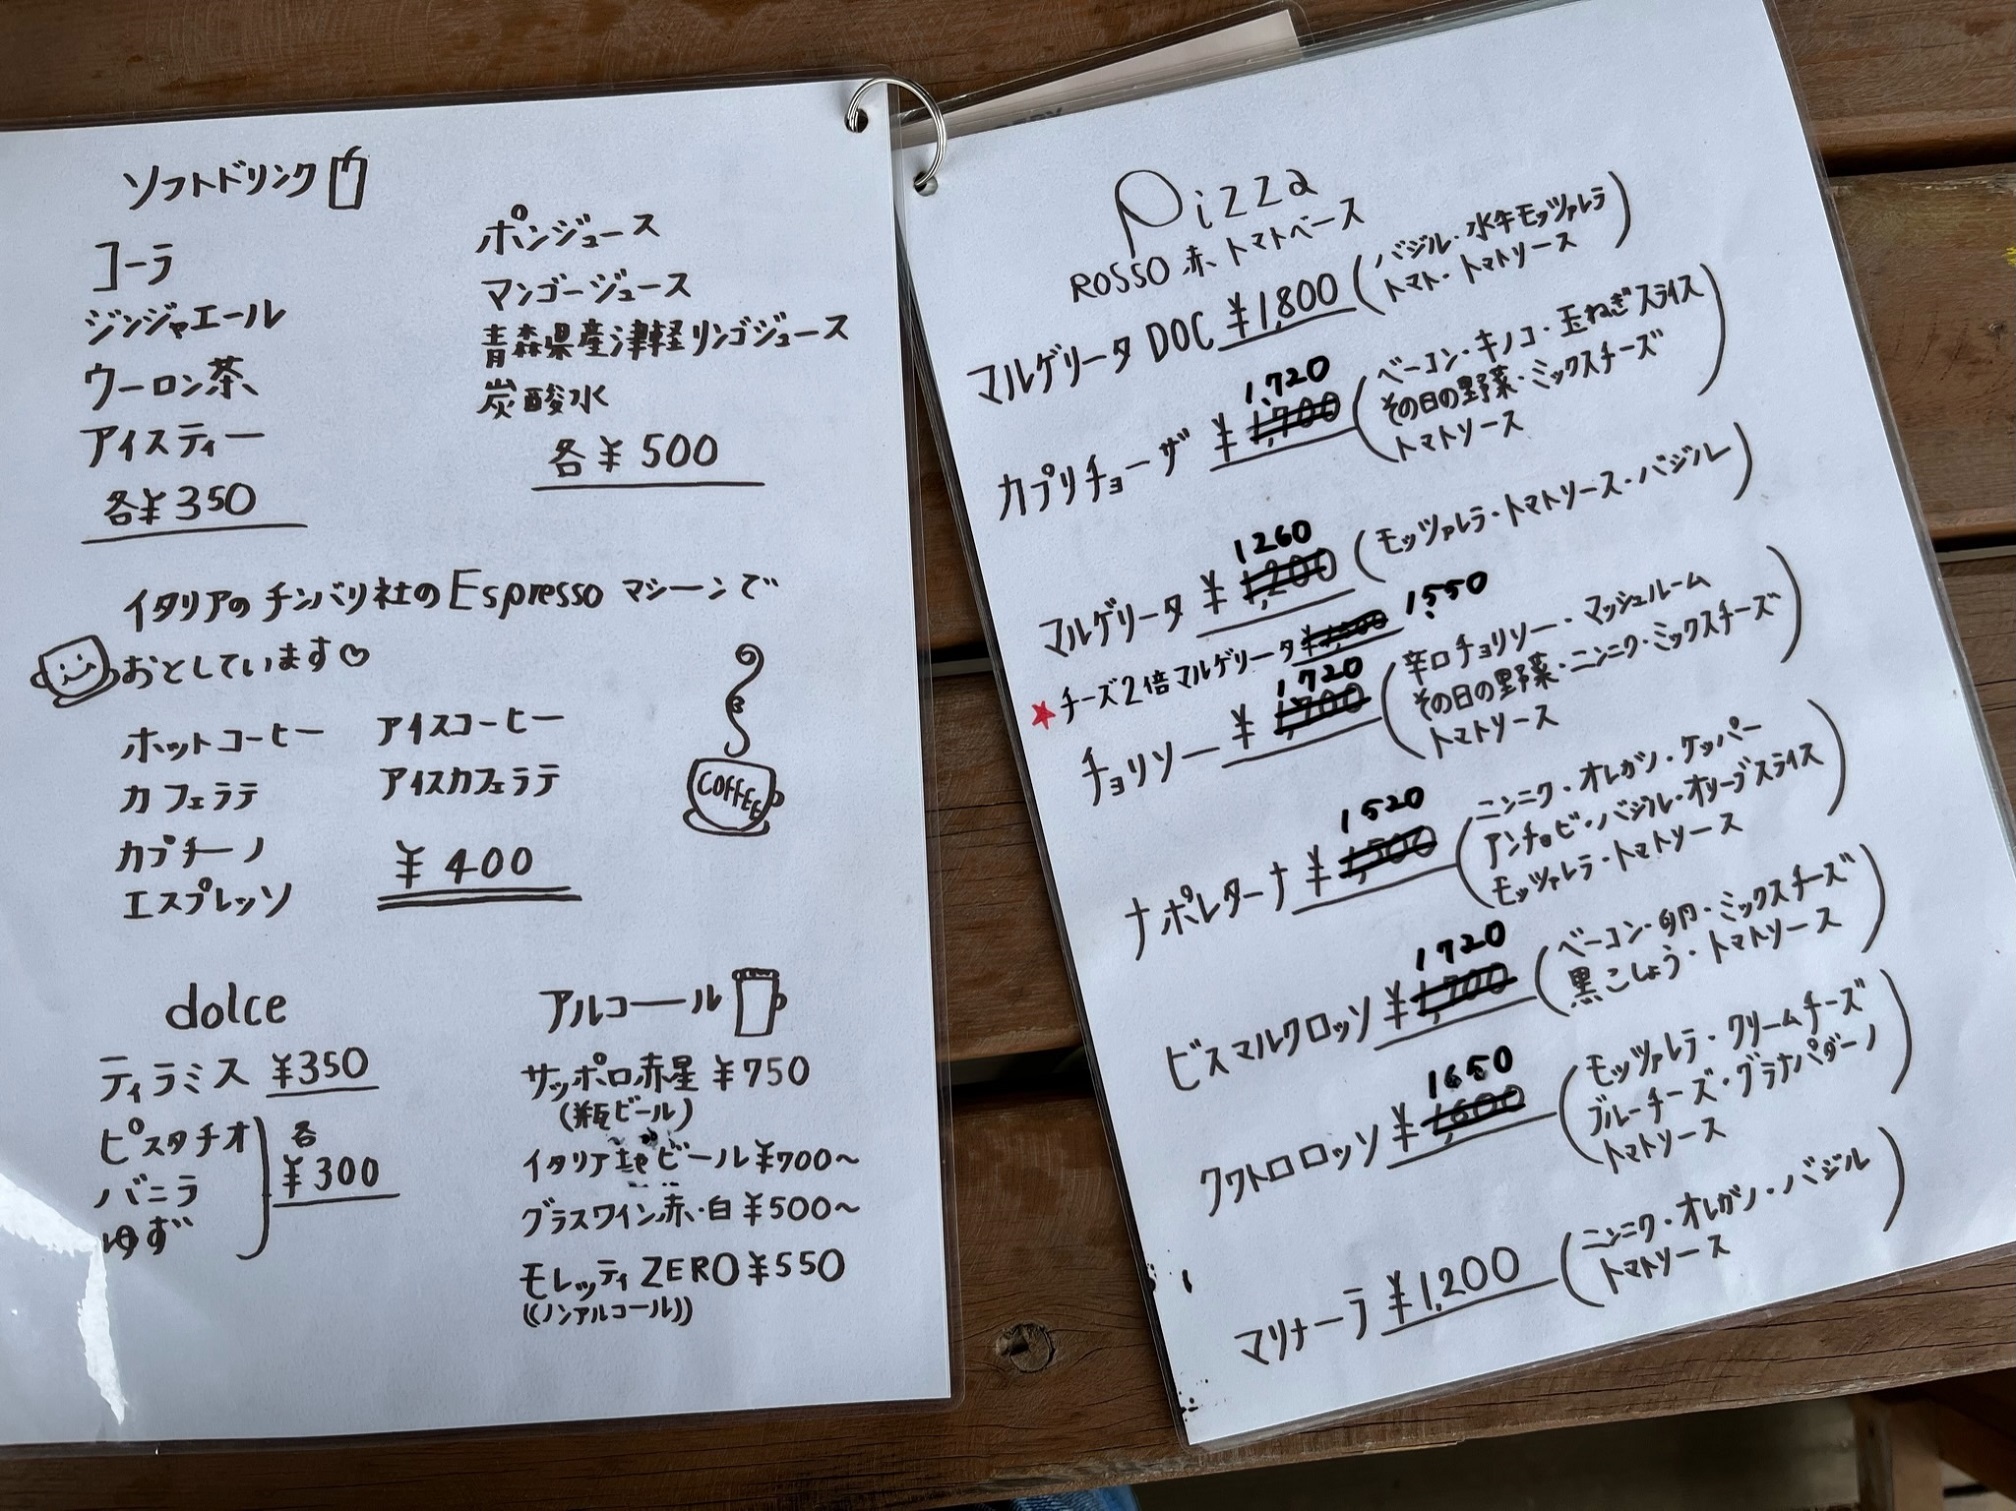 ソフトドリンク
コーラ
ジンジャエール
ウーロン茶
アイスティー
各¥350
ポンジュース
マンゴージュース
青森県産津軽リンゴジュース
炭酸水
各¥500
イタリアのチンバリ社のEspressoマシーンで
おとしています♡
ホットコーヒー
カフェラテ
カプチーノ
エスプレッソ
アイスコーヒー
アイスカフェラテ
¥400
COFFEE
dolce
ティラミス ¥350
ピスタチオ
バニラ
ゆず
各
¥300
アルコール
サッポロ赤星 ¥750
(瓶ビール)
イタリア ビール¥700～
グラスワイン赤・白 ¥500～
モレッティZERO¥550
((ノンアルコール))
Pizza
ROSSO 赤 トマトベース
マルゲリータ DOC ¥1,800 (バジル・水牛モッツァレラ
トマト・トマトソース)
1,720
カプリチョーザ ¥1,700 (ベーコン・キノコ・玉ねぎスライス
その日の野菜・ミックスチーズ
トマトソース)
1260
マルゲリータ ¥1,200 (モッツァレラ・トマトソース・バジル)
★チーズ2倍マルゲリータ¥1,500 1550
1720
チョリソー ¥1,700 (辛口チョリソー・マッシュルーム
その日の野菜・ニンニク・ミックスチーズ
トマトソース)
1520
ナポレターナ ¥1,500 (ニンニク・オレガノ・ケッパー
アンチョビ・バジル・オリーブスライス
モッツァレラ・トマトソース)
1720
ビスマルクロッソ ¥1,700 (ベーコン・卵・ミックスチーズ
黒こしょう・トマトソース)
1650
クワトロロッソ ¥1,600 (モッツァレラ・クリームチーズ
ブルーチーズ・グラナパダーノ
トマトソース)
マリナーラ ¥1,200 (ニンニク・オレガノ・バジル
トマトソース)